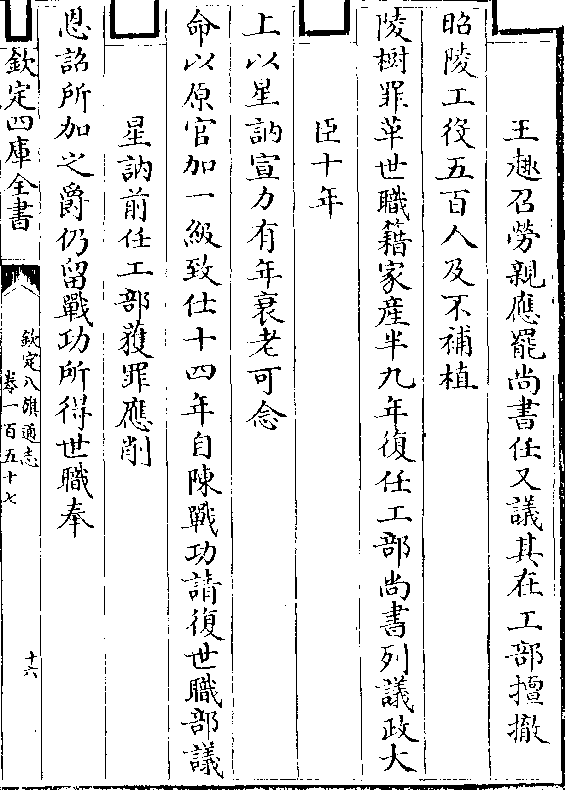 王趣召勞親應罷尚書任又議其在工部擅撤
昭陵工役五百人及不補植
陵樹罪革世職籍家産半九年復任工部尚書列議政大
臣十年
上以星訥宣力有年衰老可念
命以原官加一級致仕十四年自陳戰功請復世職部議
星訥前任工部獲罪應削
恩詔所加之爵仍留戰功所得世職奉
欽定四庫全書
欽定八旗通志
卷一百五十七
十六